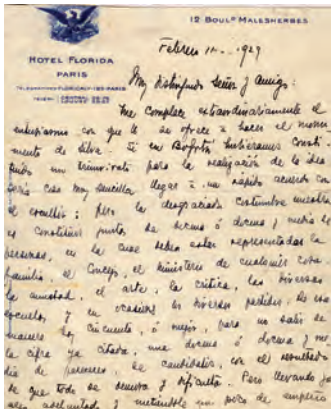 12 BOULD MALESHERBES
HOTEL FLORIDA
PARIS
Febrero 1929
Muy distinguido Señor y Amigo:
Me complace extraordinariamente el
entusiasmo con que Ud se ofrece a hacer el monu
mento de Silva. Si en Bogotá hubieramos consti-
tuido un triunvirato para la realización de la idea
sería cosa muy sencilla llegar á un rápido acuerdo con
el escultor; pero la desgraciada costumbre nuestra
es constituir juntas, de decena ó docena y media de
personas, en la cual deben estar representadas la
familia, el Concejo, el Ministerio de cualquier cosa,
la amistad, el arte, la crítica, las diversas
escuelas y en ocasiones los diversos partidos; de esa
manera hay cincuenta, ó mejor, para no salir de
la cifra ya citada, una docena ó docena y me
dia de pareceres, de candidatos, con el resultado
de que todo se demora y dificulta. Pero llevando ya
algo adelantado y metiéndole un poco de empeño